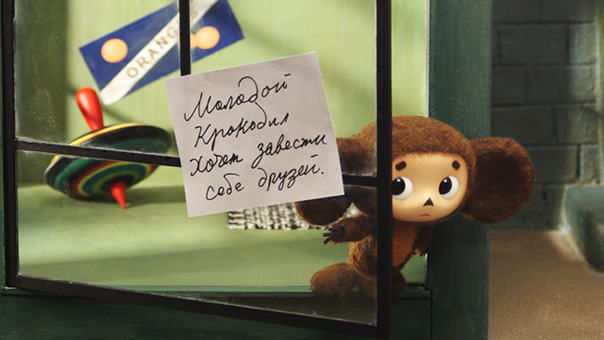 ORANG
Молодой
Крокодил
хочет завести
себе друзей.